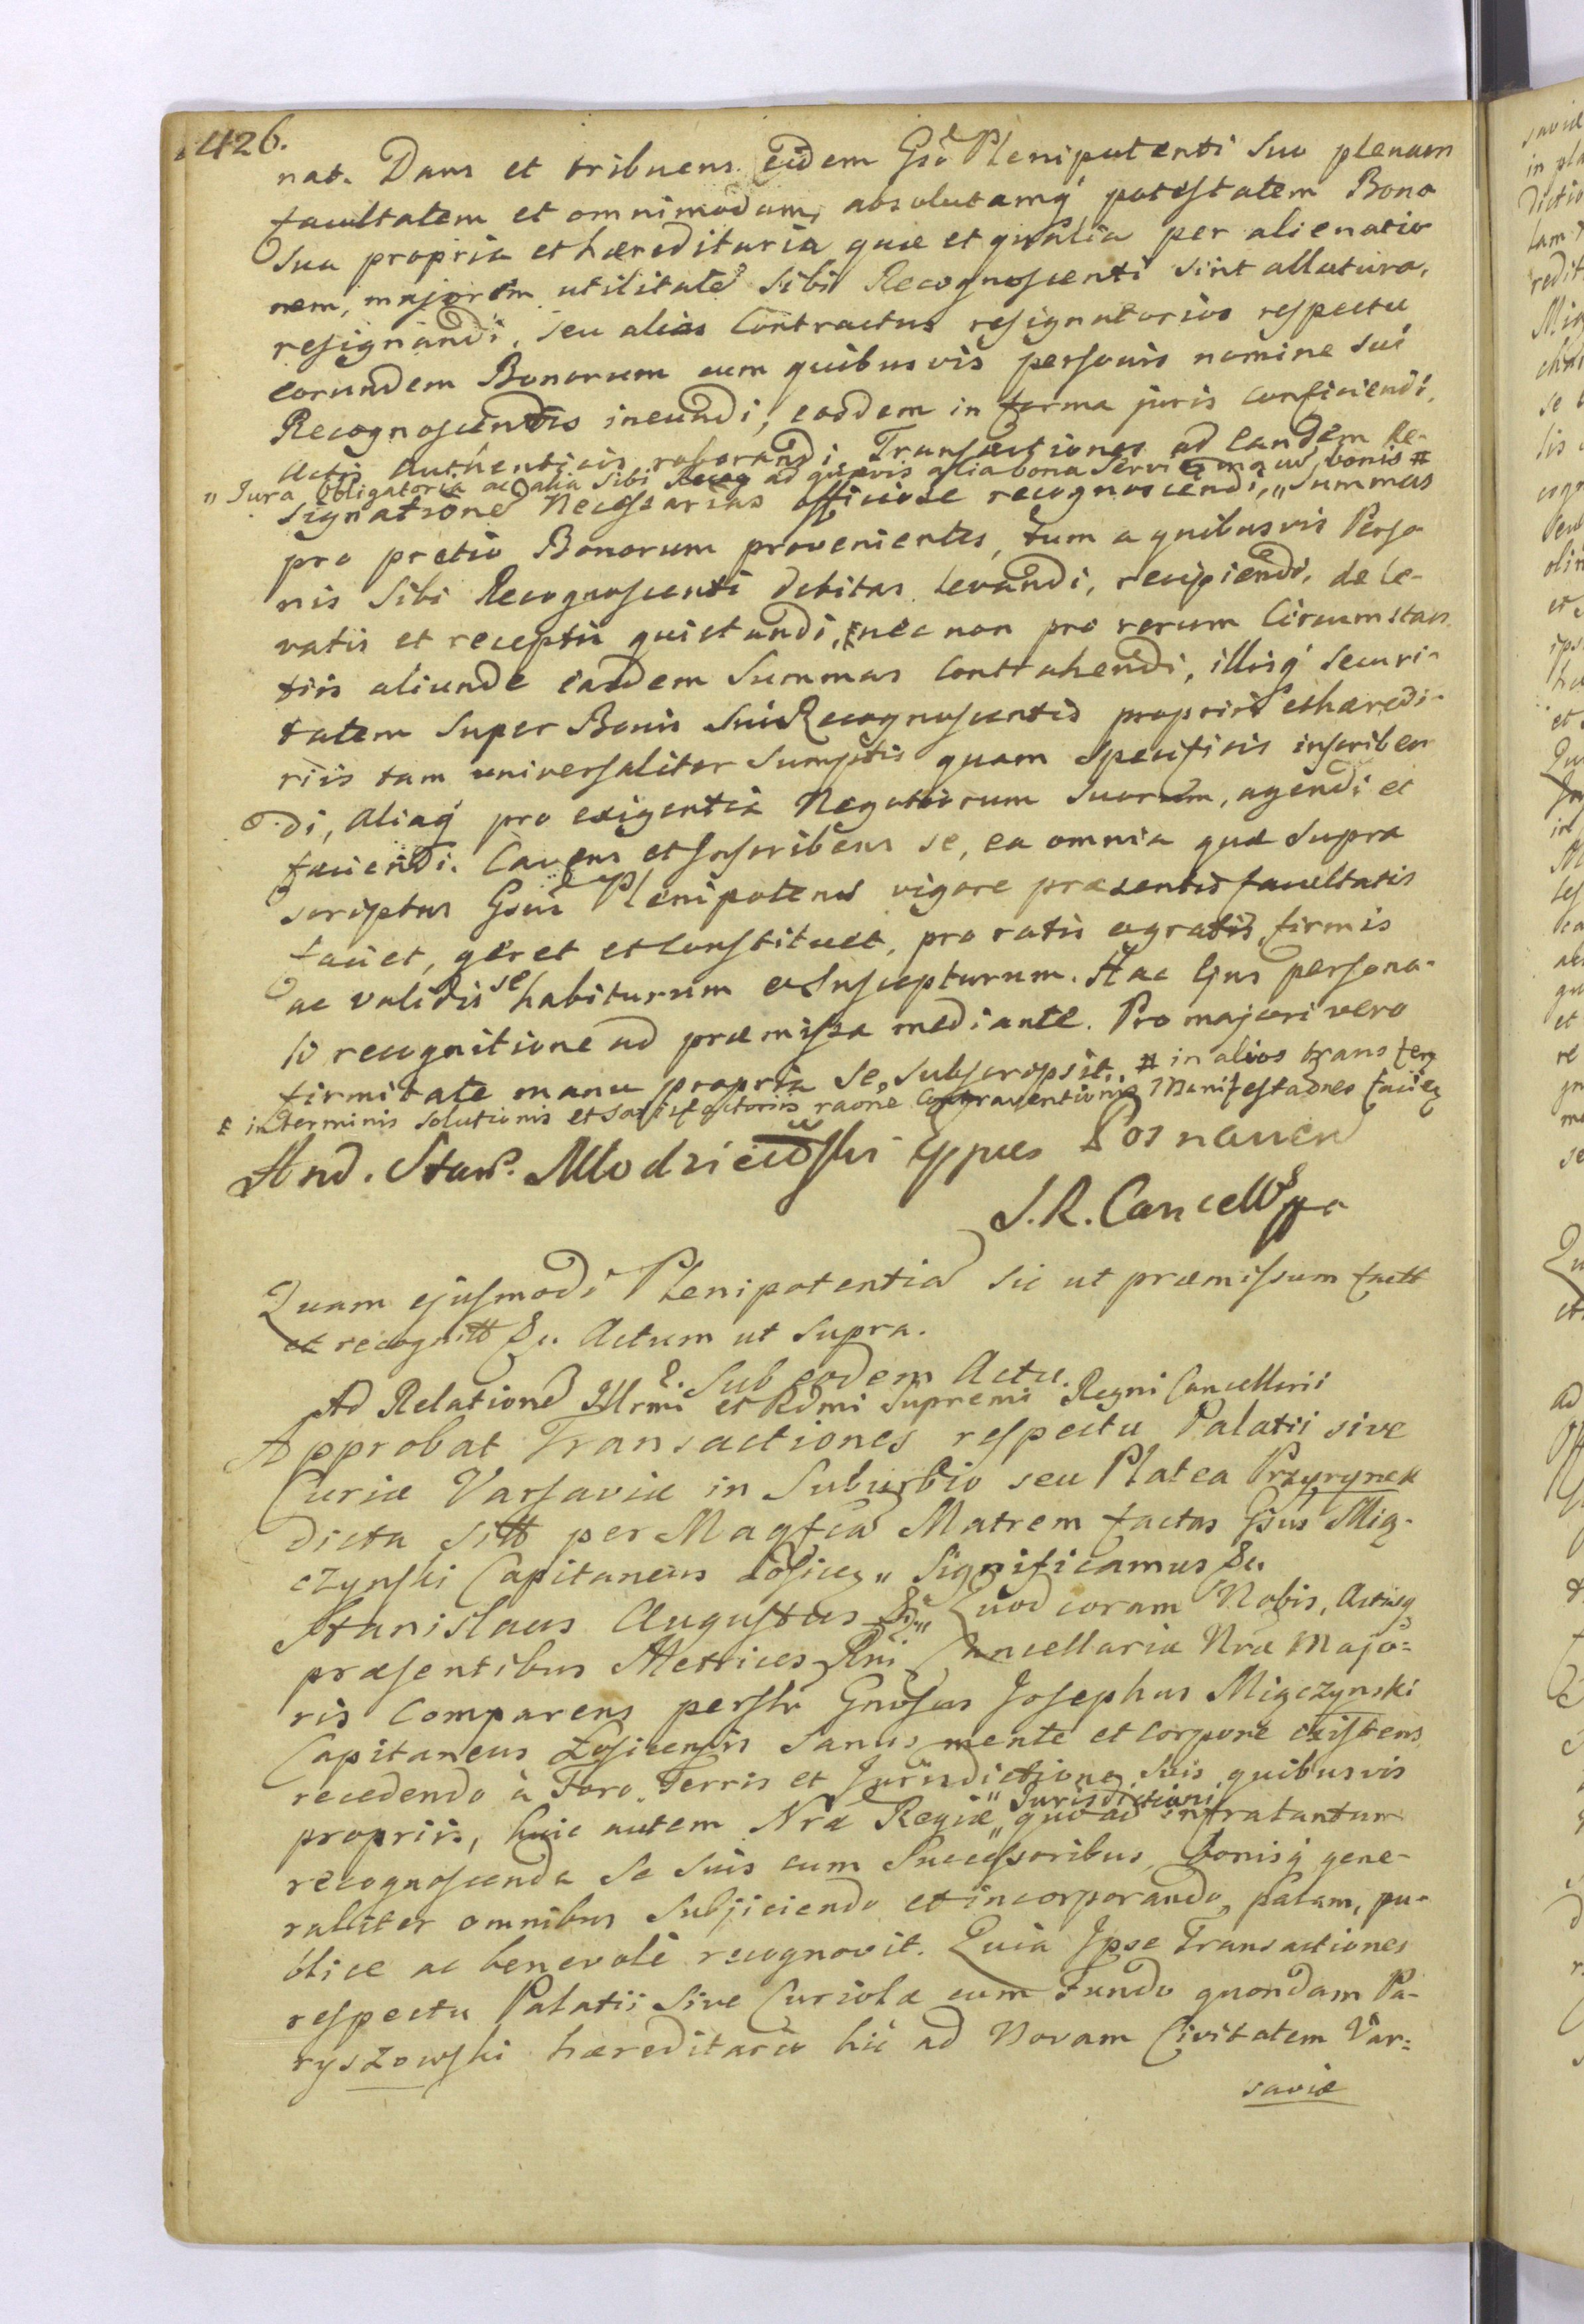 426.
nat. Dans et tribuens eidem Gso Plenipotenti suo plenam
facultatem et omnimodam, absolutamq́ potestatem Bona
sua propria et hæreditaria quæ et qualia per alienatio
nem, majorem utilitatē sibi Recognoscenti sint allatura,
resignandi, seu alias Contractus resignatorios respectu
eorundem Bonorum cum quibusvis personis nomine sui
Recognoscentis ineundi, eosdem in forma juris conficiendi,
Actis Authenticis roborandi, Transactiones ad eandem Re-
„ Jura Obligatoria ac alia sibi ad quævis alia bona bonis #
signationē Necessarias officiose recognoscendi, „ Summas
pro pretio Bonorum provenientes, tum a quibusvis Perso
nis Sibi Recognoscenti debitas levandi, recipiendi, de le-
vatis et receptis quietandi, ŧ nec non pro rerum Circumstan
tiis aliunde easdem Summas Contrahendi, illisq́ securi-
tatem super Bonis sui Recognoscentis propriis et hæredi-
riis tam universaliter sumptis quam specificis inscriben
di, aliaq́ pro exigentia Negotiorum suorum, agendi et
faciendi. Cavens et Inscribens se, ea omnia quæ supra
scriptus Gsus Plenipotens vigore præsentis facultatis
faciet, geret et constituet, pro ratis ac gratis, firmis
ac validis se habiturum et suscepturum. Hac Ejus persona-
li recognitione ad præmissa mediante. Pro majori vero
firmitate manu propria se subscripsit. # in alios transfer
ŧ in terminis solutionis et satisfactoriis raōne contraventionis Manifestaōnes
And. Stan. Młodzieiowski Eppus Posnanien
S. R. Cancell
Quam ejusmodi Plenipotentiā sic ut præmissum fact
et recognitt &c. Actum ut supra.
Sub eodem Actu.
Ad Relationē Illrmi et Rdmi Supremi Regni Cancellarii
Approbat Transactiones respectu Palatii sive
Curiæ Varsaviæ in Suburbio seu Platea Przyrynek
dicta sitt per Magfcā Matrem factas Gsus Mią-
czynski Capitaneus Łosicen „ Significamus &c.
Stanislaus Augustus &c „ Quod coram Nobis, Actisq
præsentibus Metrices Rni Cancellariæ Nræ Majo=
ris Comparens personlr Gnosus Josephus Miączynski
Capitaneus Łosicensis sanus mente et corpore existens
recedendo à Foro, Terris et Jurisdictione suis quibusvis
propriis, huic autem Nræ Regiæ „ Jurisdictioni quoad infra tantum
recognoscenda se suis cum Successoribus, bonisq́ gene-
raliter omnibus subjiciendo et incorporando, palam, pu-
blice ac benevole recognovit. Quia Ipse Transactiones
respectu Palatii sive Curiolæ cum Fundo quondam Pa-
ryszowski hæreditario hic ad Novam Civitatem Var=
saviæ